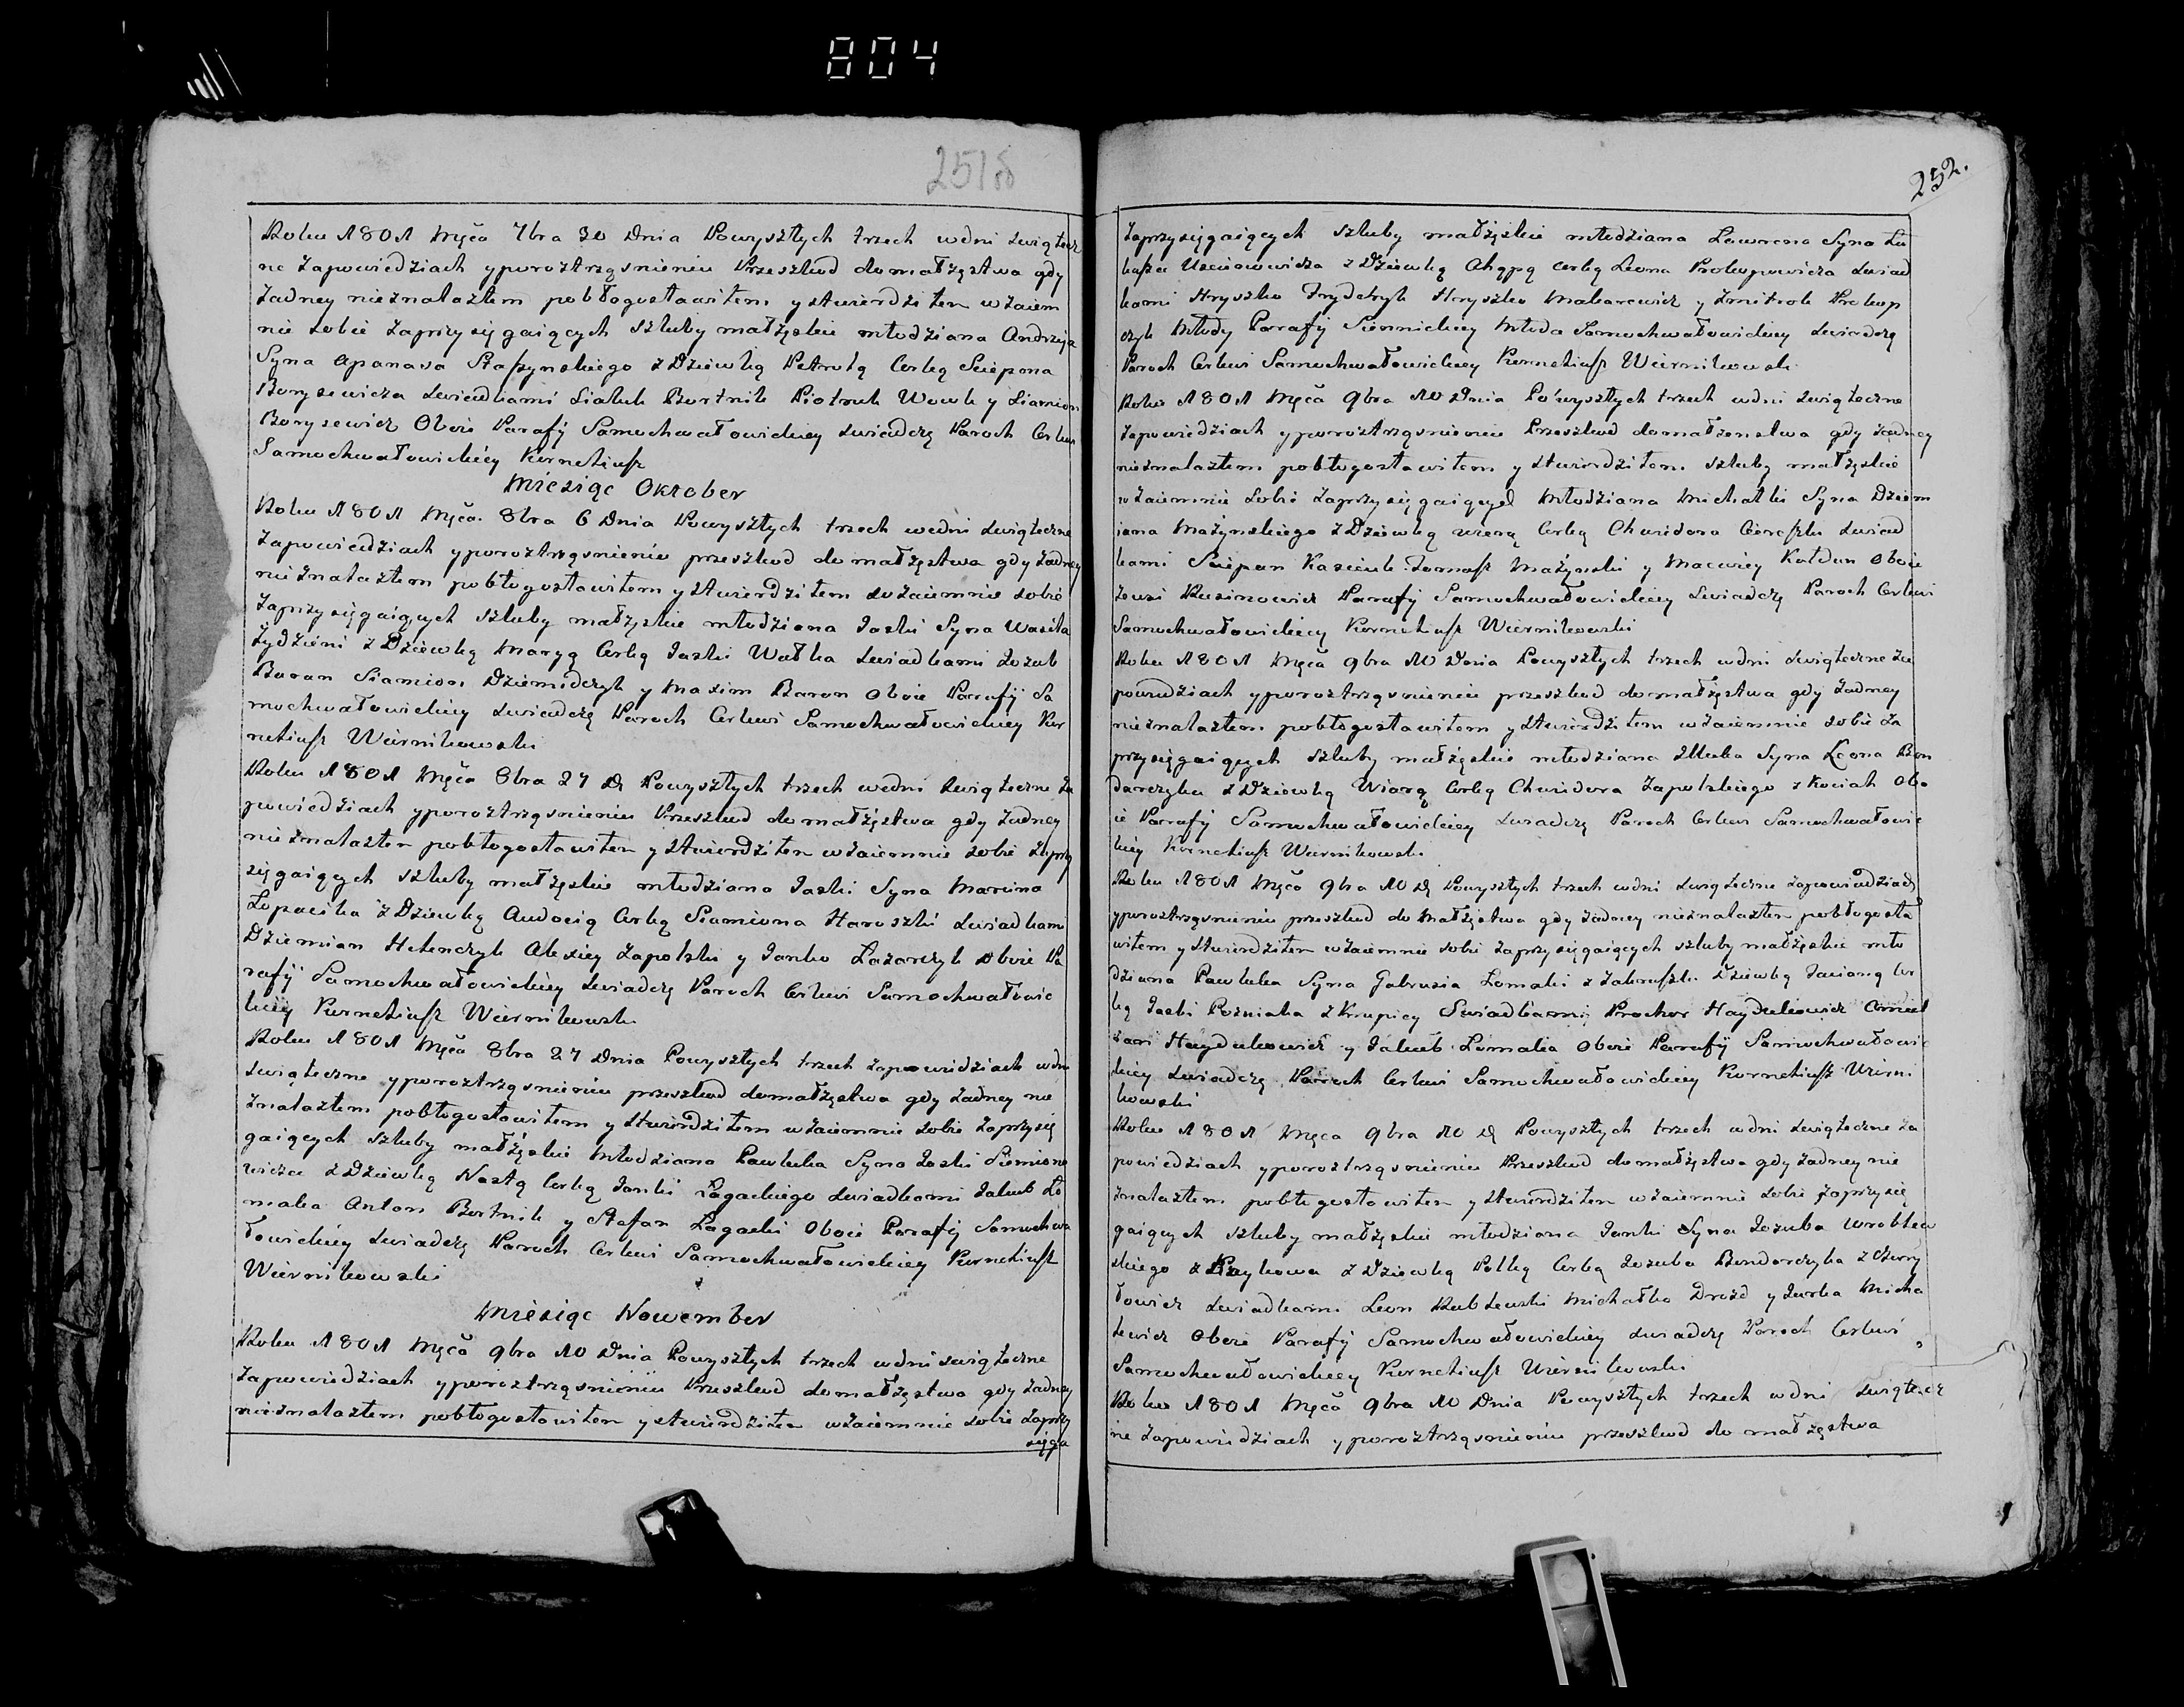 804
251 об
252.
Roku 1801 Męca 7bra 30 Dnia Powyszłych trzech wdni Swiątecz
ne Zapowiedziach y poroztrząsnieniu Przeszkod do małżęstwa gdy
Zadney nieznalazłem pobłogosławiłem y stwierdziłem wzaiem
nie sobie zaprzysięgaiących szluby małżęskie młodziana Andrzeja
Syna Apanasa Staszynskiego z Dziewką Petrolą Corką Sciepana
Borysewicza Swiadkami Siałuk Bortnik Piotruk Wowk y Siamion
Borysewicz Oboie Parafÿ Samochwałowickiey swiadczę Paroch Cerkwi
Samochwałowickiey Korneliusz
Miesiąc Oktober
Roku 1801 Męca 8bra 6 Dnia Powyszłych trzech wedni swiąteczne
Zapowiedziach y poroztrząsnieniu przeszkod do małżęstwa gdy żadney
nieznalazłem pobłogosławiłem y stwierdziłem wzaiemnie sobie
zaprzysięgaiących szluby małżęskie młodziana Jaski Syna Wasila
Zydzieni z Dziewką Maryą Corką Jaski Wałka Swiadkami Jozub
Baran Siamion Dziemidczyk y Maxim Baran oboie Parafÿ Sa
mochwałowickiey swiadczę Paroch Cerkwi Samochwałowickiey Kor
neliusz Wiernikowski
Roku 1801 Męca 8bra 27 D Powyszłych trzech wedni swiąteczne za
powiedziach y poroztrząsnieniu Przeszkod do małżęstwa gdy żadney
nieznalazłem pobłogosławiłem y stwierdziłem wzaiemnie sobie zaprzy
sięgaiących szluby małżęskie młodziana Jaski Syna Marcina
Łopacika z Dziewką Audocią Corką Siamiona Haroszki Swiadkami
Dziemian Helenczyk Alexiey Zapolski y Janko Łazarczyk oboie Pa
rafÿ Samochwałowickiey swiadczę Paroch Cerkwi Samochwałowic
kiey Korneliusz Wiernikowski
Roku 1801 Męca 8bra 27 Dnia Powyszłych trzech zapowiedziach wdni
swiąteczne y poroztrząsnieniu przeszkod do małżęstwa gdy żadney nie
znalazłem pobłogosławiłem y stwierdziłem wzaiemnie sobie zaprzysię
gaiących szluby małżęskie młodziana Pawluka Syna Jaski Simiono
wicza z Dziewką Nastą Corką Janki Łagackiego swiadkami Jakub Ło
maka Anton Bortnik y Stefan Łagacki Oboie Parafÿ Samochwa
łowickiey swiadczę Paroch Cerkwi Samochwałowickiey Korneliusz
Wiernikowski
Miesiąc Nowember
Roku 1801 Męca 9bra 10 Dnia Powyszłych trzech wdni swiąteczne
Zapowiedziach y poroztrząsnieniu Przeszkod do małżęstwa gdy żadney
nieznalazłem pobłogosławiłem y stwierdziłem wzaiemnie sobie zaprzy
sięga
zaprzysięgaiących szluby małżęskie młodziana Lawrena Syna Łu
kasza Uscinowicza z Dziewką Ahapą Corką Leona Prokopowicza swiad
kami Hryszko Frydchyk Hryszko Makarewicz y Zmitrok Prokop
czyk Młody Parafÿ Siennickiey Młoda Samochwałowickiey swiadczę
Paroch Cerkwi Samochwałowickiey Korneliusz Wiernikowski
Roku 1801 Męca 9bra 10 Dnia Powyszłych trzech wdni swiąteczne
Zapowiedziach y poroztrząsnieniu Przeszkod do małżenstwa gdy żadney
nieznalazłem pobłogosławiłem y stwierdziłem szluby małżęskie
wzaiemnie sobie zaprzysięgaiących Młodziana Michałki Syna Dziem
iana Mażynskiego z Dziewką Uieną Corką Chwiedora Cieraszki swiad
kami Sciepan Kasciuk Tomasz Mażynski y Maciey Kałdun Oboie
zewsi Rusinowicz Parafÿ Samochwałowickiey swiadczę Paroch Cerkwi
Samochwałowickiey Korneliusz Wiernikowski
Roku 1801 Męca 9bra 10 Dnia Powyszłych trzech wdni swiąteczne za
powiedziach y poroztrząsnieniu przeszkod do małżęstwa gdy żadney
nieznalazłem pobłogosławiłem y stwierdziłem wzaiemnie sobie za
przysięgaiących szluby małżęskie młodziana Illuka Syna Leona Bon
darczyka z Dziewką Wiarą Corką Chwidora Zapolskiego z Kociah obo
ie Parafÿ Samochwałowickiey swiadczę Paroch Cerkwi Samochwałowic
kiey Korneliusz Wiernikowski
Roku 1801 Męca 9bra 10 D Powyszłych trzech wdni swiąteczne zapowiedziach
y poroztrząsnieniu przeszkod do małżęstwa gdy żadney nieznalazłem pobłogosła
wiłem y stwierdziłem wzaiemnie sobie zaprzysięgaiących szluby małżęskie mło
dziana Pawluka Syna Gabrusia Łomaki z Dziewką Taciąną Cor
ką Jaski Pożniaka z Krupicy Swiadkami Prochor Haydukowicz
Haydukowicz y Jakub Łomaka Oboie Parafÿ Samochwałowic
kiey swiadczę Paroch Cerkwi Samochwałowickiey Korneliusz Wierni
kowski
Roku 1801 Męca 9bra 10 D Powyszłych trzech wdni swiąteczne za
powiedziach y poroztrząsnieniu Przeszkod do małżęstwa gdy żadney nie
znalazłem pobłogosławiłem y stwierdziłem wzaiemnie sobie zaprzysię
gaiących szluby małżęskie młodziana Janki Syna Jozuba Wroblew
skiego z Dziewką Polką Corką Jozuba Bondarczyka z Czerny
łowicz swiadkami Leon Rublewski Michałko Drozd y Jurka Micha
lewicz Oboie Parafÿ Samochwałowickiey swiadczę Paroch Cerkwi
Samochwałowickiey Korneliusz Wiernikowski
Roku 1801 Męca 9bra 10 Dnia Powyszłych trzech wdni swiątecz
ne zapowiedziach y poroztrząsnieniu przeszkod do małżęstwa